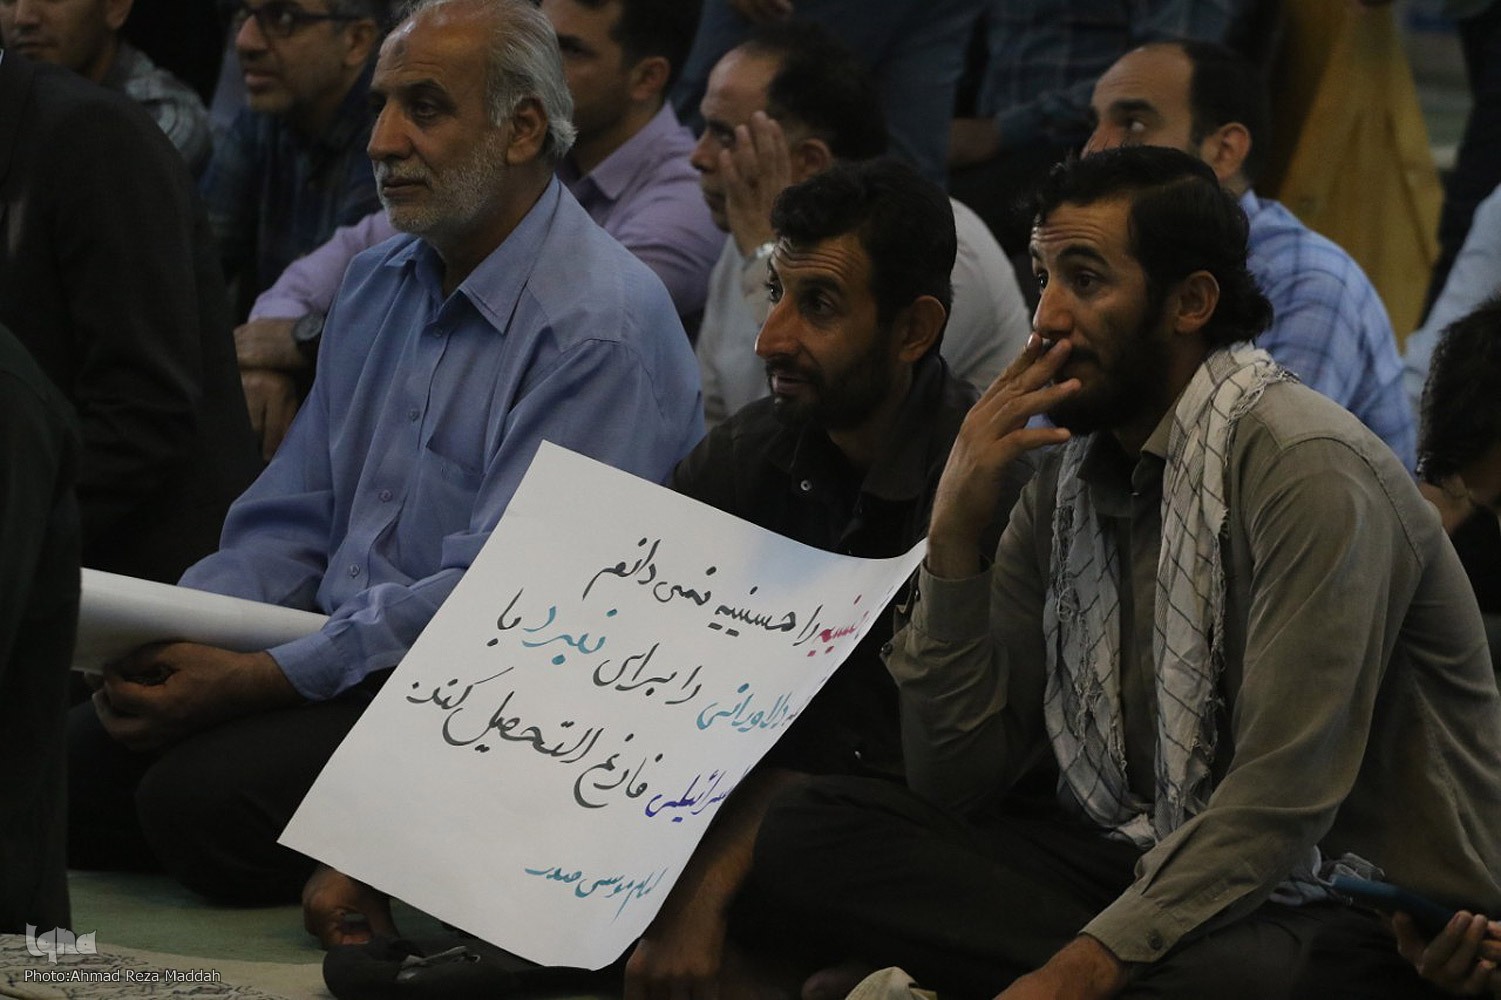 حسینیه را حسینیه نمی دانم
دلاورانی را برای نبرد با
اسرائیل فارغ التحصیل نکند.
امام موسی صدر
iqna
Photo:Ahmad Reza Maddah